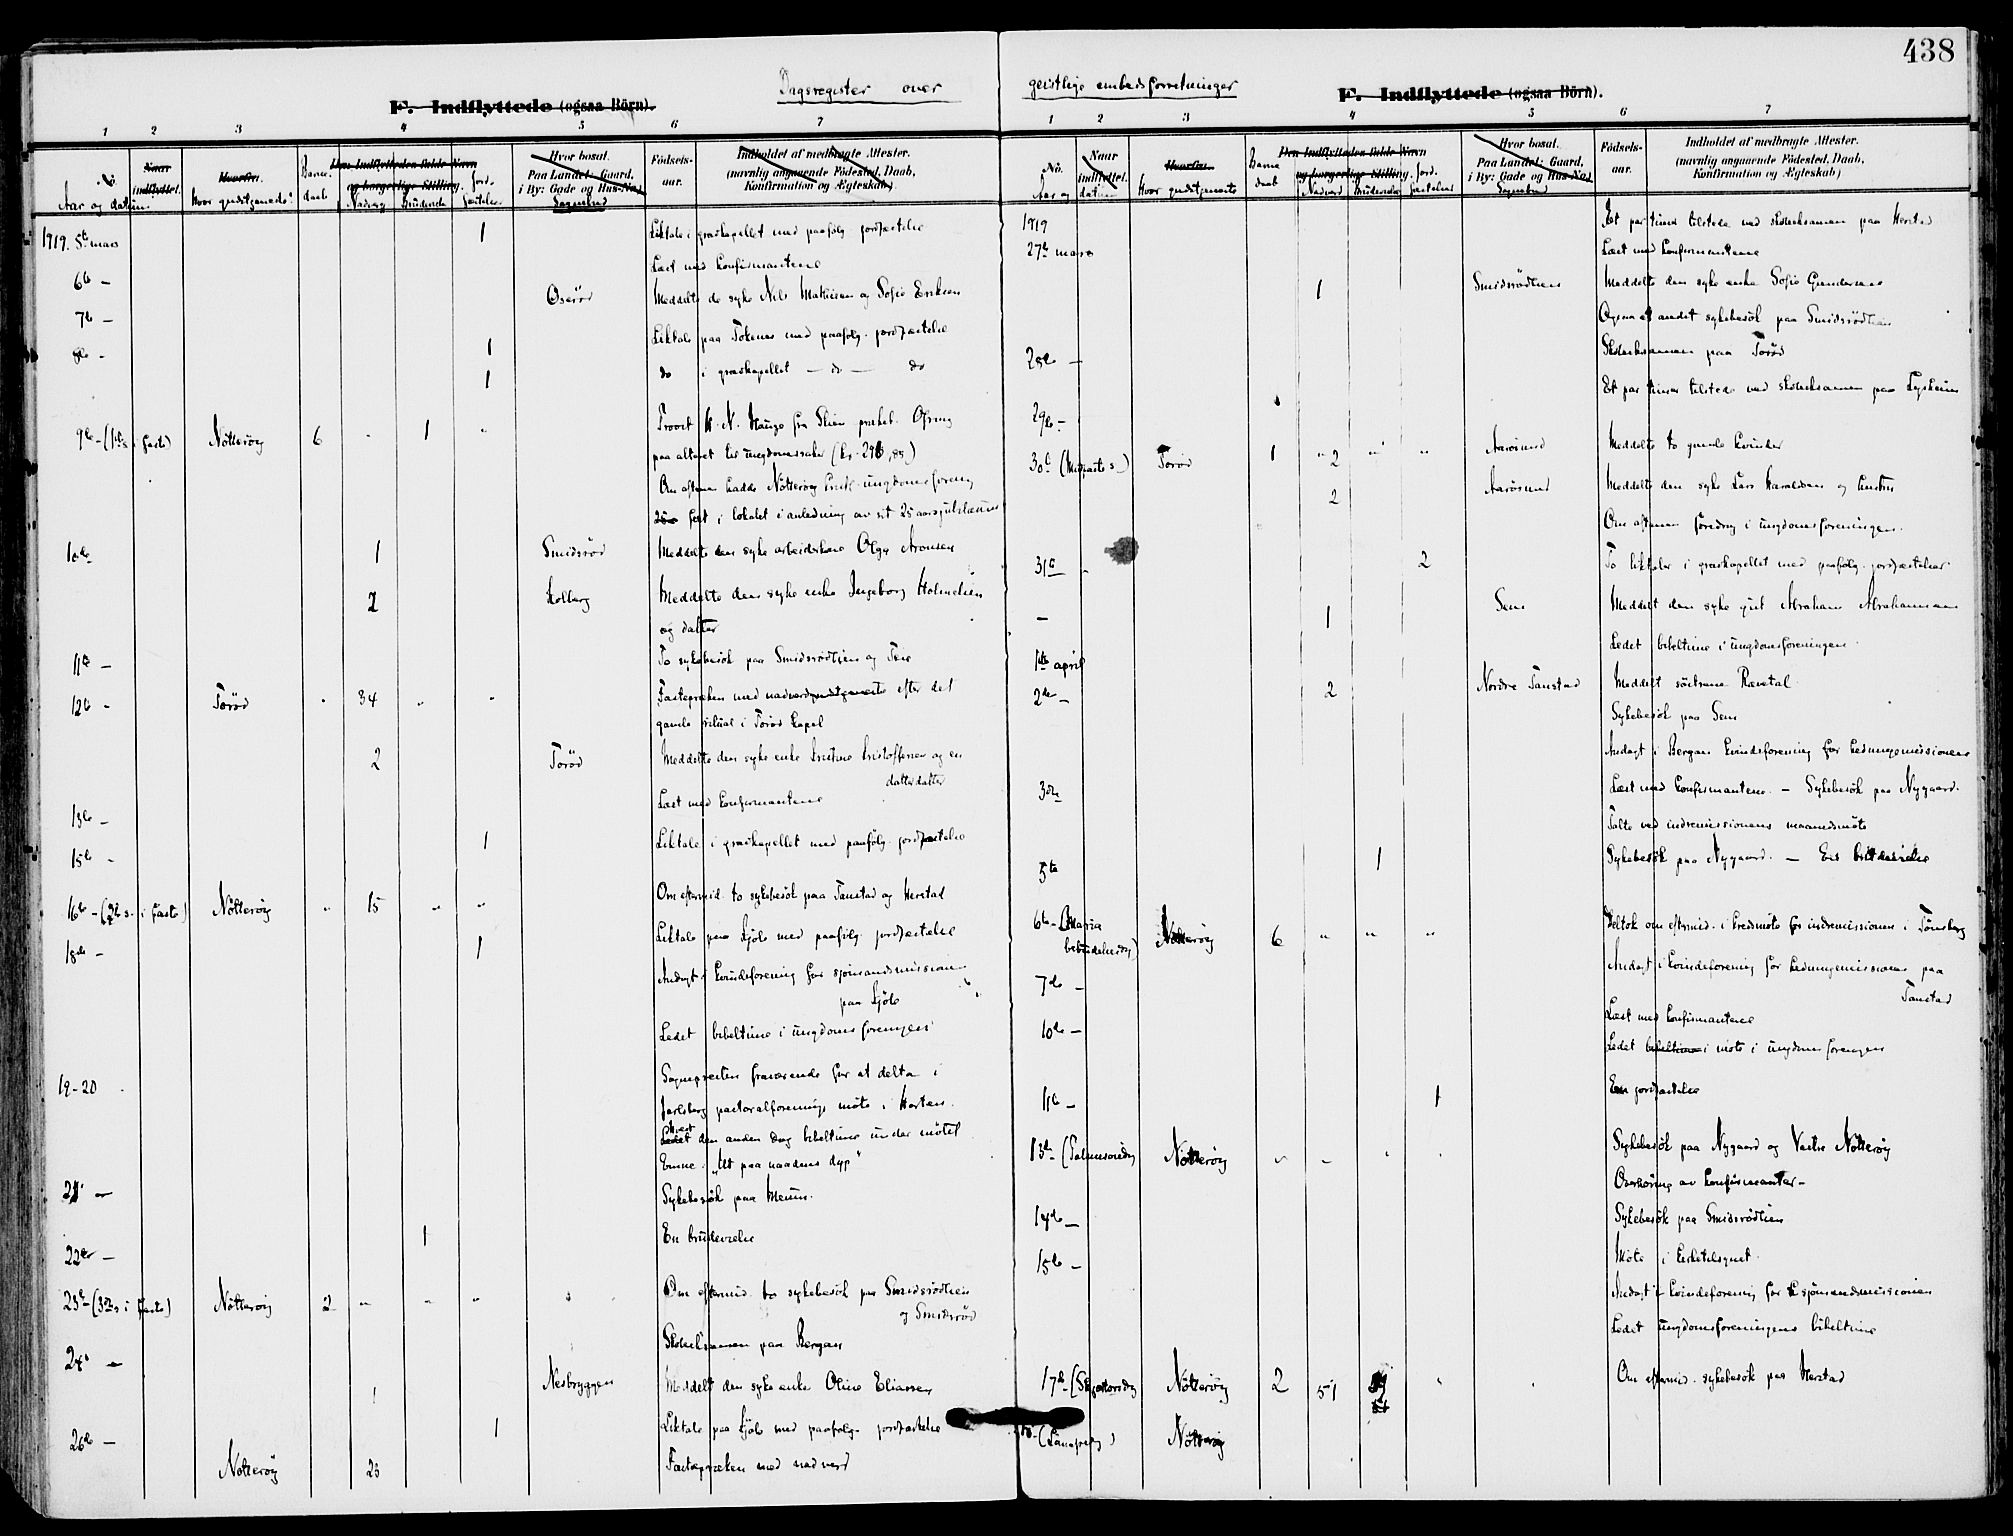 438
Dagsregister over geistlige embedsforretninger
F. Indflyttede (ogsaa Börn).
1 2 3 4 5 6 7
No.
Aar og datum
Naar indflyttet.
Hvorfra.
Hvor gudstjeneste?
Barne daab
Den Indflyttedes fulde Navn og borgerlige Stilling.
Nadverg Brudevielse Jordfæstelse
Hvor bosat.
Paa Landet: Gaard,
i By: Gade og Hus-No.
Sognebud
Födsels-aar.
Indholdet af medbragte Attester.
(navnlig angaaende Födested, Daab,
Konfirmation og Ægteskab)
1919. 5te mars 1 Liktale i gravkapellet med paafølg. jordfæstelse
Læst med konfirmantene
6te - Oserød Meddelte de syke Nils Mathisen og Sofie Eriksen
7de -
8de - 1 Liktale paa Tokenes med paafølg. jordfæstelse
1 do i gravkapellet — do — do
9de - (1ste s. i faste) Nötterøy 6 " 1 " Provst H. N. Hauge fra Skien prækte. Ofring
paa alteret til ungdomssaken
Om aftenen hadde Nötterøy kristl. ungdomsforening
fest i lokalet i anledning av sit 25 aarsjubilæum
10de 1 Smidsrød Meddelte den syke arbeiderkone Olga Aronsen
2 Kolberg Meddelte den syke enke Ingeborg Holmelien
og datter
11te - To sykebesök paa Smidsrødtien og Teie
12te - Torød " 34 " " Fasteprœken med nadverdgudstjeneste efter det
gamle ritual i Torød kapel
2 Torød Meddelte den syke enke Kristine Kristoffersen og en
datterdatter
13de - Læst med konfirmantene
15de - 1 Liktale i gravkapellet med paafölg. jordfæstelse
16de - (2den s. i faste) Nötterøy " 15 " " Om eftermid. to sykebesök paa Tanstad og Herstad
18de - 1 Liktale paa Fjöle med paafølg. jordfæstelse
Andagt i kvindeforening for sjömandsmissionen
paa Fjöle
Ledet bibeltime i ungdomsforeningen
19-20 Sognepresten fraværende for at delta i
Jarlsberg pastoralforenings möte i Horten.
den anden dag bibeltime under mötet
Emne: "Ut paa naadens dyp"
21 - Sykebesök paa Meum.
22de - 1 En brudevielse
23de - (3die s. i faste) Nötteröy 2 " " " Om eftermid. to sykebesök paa Smidsrødtien
og Smidsrød
24de - Skoleeksamen paa Bergan
1 Nesbryggen Meddelt den syke enke Oline Eliassen
26de - 1 Liktale paa Fjöle med paafølg. jordfæstelse
Nötteröy 26 Fasteprœken med nadverd
F. Indflyttede (ogsaa Börn).
1 2 3 4 5 6 7
No.
Aar og datum
Naar indflyttet.
Hvorfra.
Hvor gudstjeneste
Barne daab
Den Indflyttedes fulde Navn og borgerlige Stilling.
Nadverd Brudevielse Jordfæstelse
Hvor bosat.
Paa Landet: Gaard,
i By: Gade og Hus-No.
Sognebud
Födsels-aar.
Indholdet af medbragte Attester.
(navnlig angaaende Födested, Daab,
Konfirmation og Ægteskab)
1919 Et par timer tilstede ved skoleeksamen paa Herstad
27de mars Læst med konfirmantene
1 Smidsrødtien Meddelte den syke enke Sofie Gundersen
Ogsaa et andet sykebesök paa Smidsrødtien
28de - Skoleeksamen paa Torød
Et par timer tilstede ved skoleeksamen paa Lysheim
29de -
30te (Midfaste s.) Torød 1 " 2 " " Aarøsund Meddelte to gamle kvinder
2 Aarøsund Meddelte den syke Lars Haraldsen og hustru
Om aftenen foredrag i ungdomsforeningen.
31te - 2 To liktaler i gravkapellet med paafølg. jordfæstelser
- 1 Sem Meddelt den syke gut Abraham Abrahamsen
Ledet bibeltime i ungdomsforeningen.
1ste april
2den - 2 Nordre Tanstad Meddelt söstrene Rævetal
Sykebesök paa Sem
Andagt i Bergan kvindeforening for hedningemissionen
3die Læst med konfirmantene. - Sykebesök paa Nygaard.
Talte ved indremissionens maanedsmöte
5te 1 Sykebesök paa Nygaard. - En brudevielse
6te - (Maria
bebudelsesdag) Nötteröy 6 " " " Deltok om eftermid. i kredsmöte for indremissionen i Tönsberg
7de - Andagt i kvindeforening for hedningemissionen paa
Tanstad
10de - Læst med konfirmantene
Ledet möte i ungdomsforeningen
11te - 1 En jordfæstelse
13de - (Palmesöndag Nötteröy " " " " Sykebesök paa Nygaard og Vestre Nötteröy
Overhöring av konfirmanter -
14de - Sykebesök paa Smidsrødtien
15de - Möte i kirketilsynet.
Andagt i kvindeforening for sjömandsmissionen
Ledet ungdomsforeningens bibeltime
17de - (Skjærtorsdag Nötterøy 2 51 " Om eftermid. sykebesök paa Herstad
(Langfredag) Nötteröy